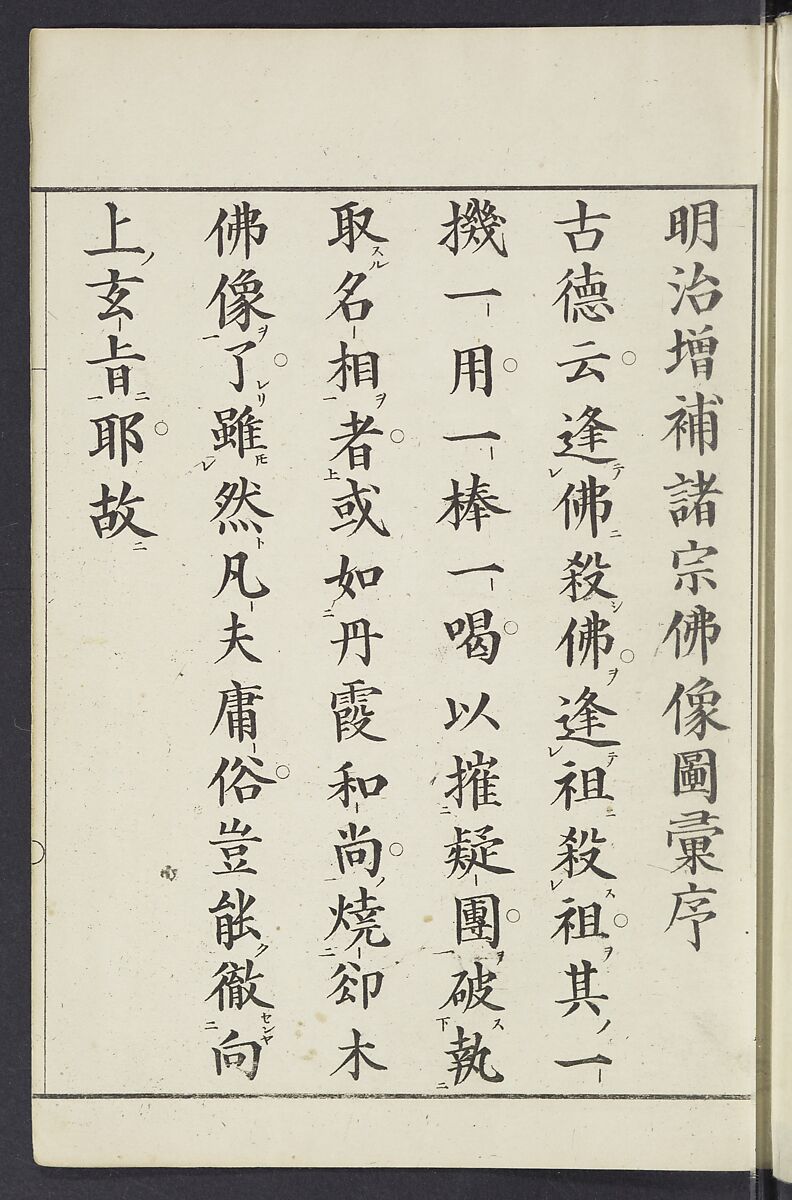 明治增補諸宗佛像圖彙序
古德云逢佛殺佛逢祖殺祖其一
機一用一棒一喝以摧疑團破執
取名相者或如丹霞和尚燒卻木
佛像了雖然凡夫庸俗豈能徹向
上玄旨耶故